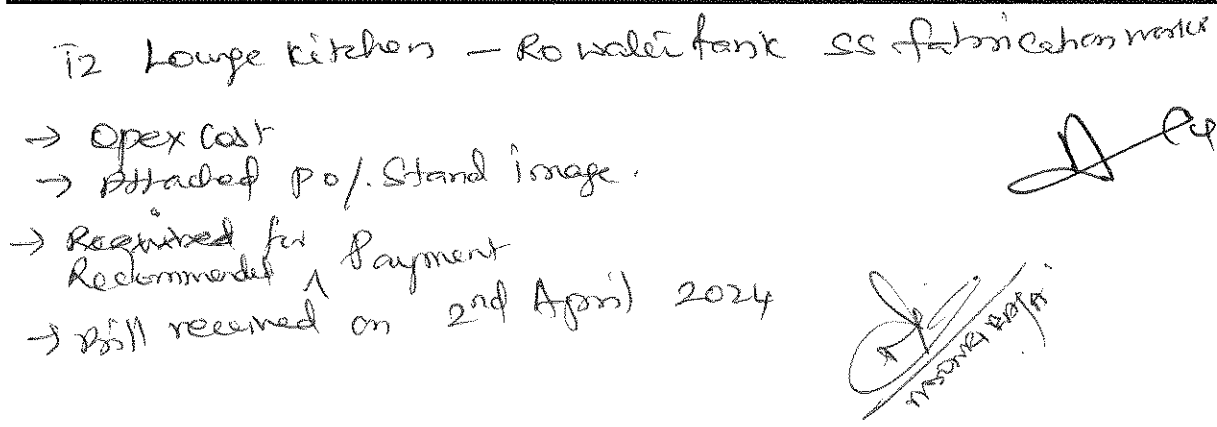 T2 Lounge Kitchen - Ro water tank SS fabrication works
→ Opex Cost
→ Attached PO/. Stand image.
→ Required for Payment
Recommended
→ Bill received on 2nd April 2024